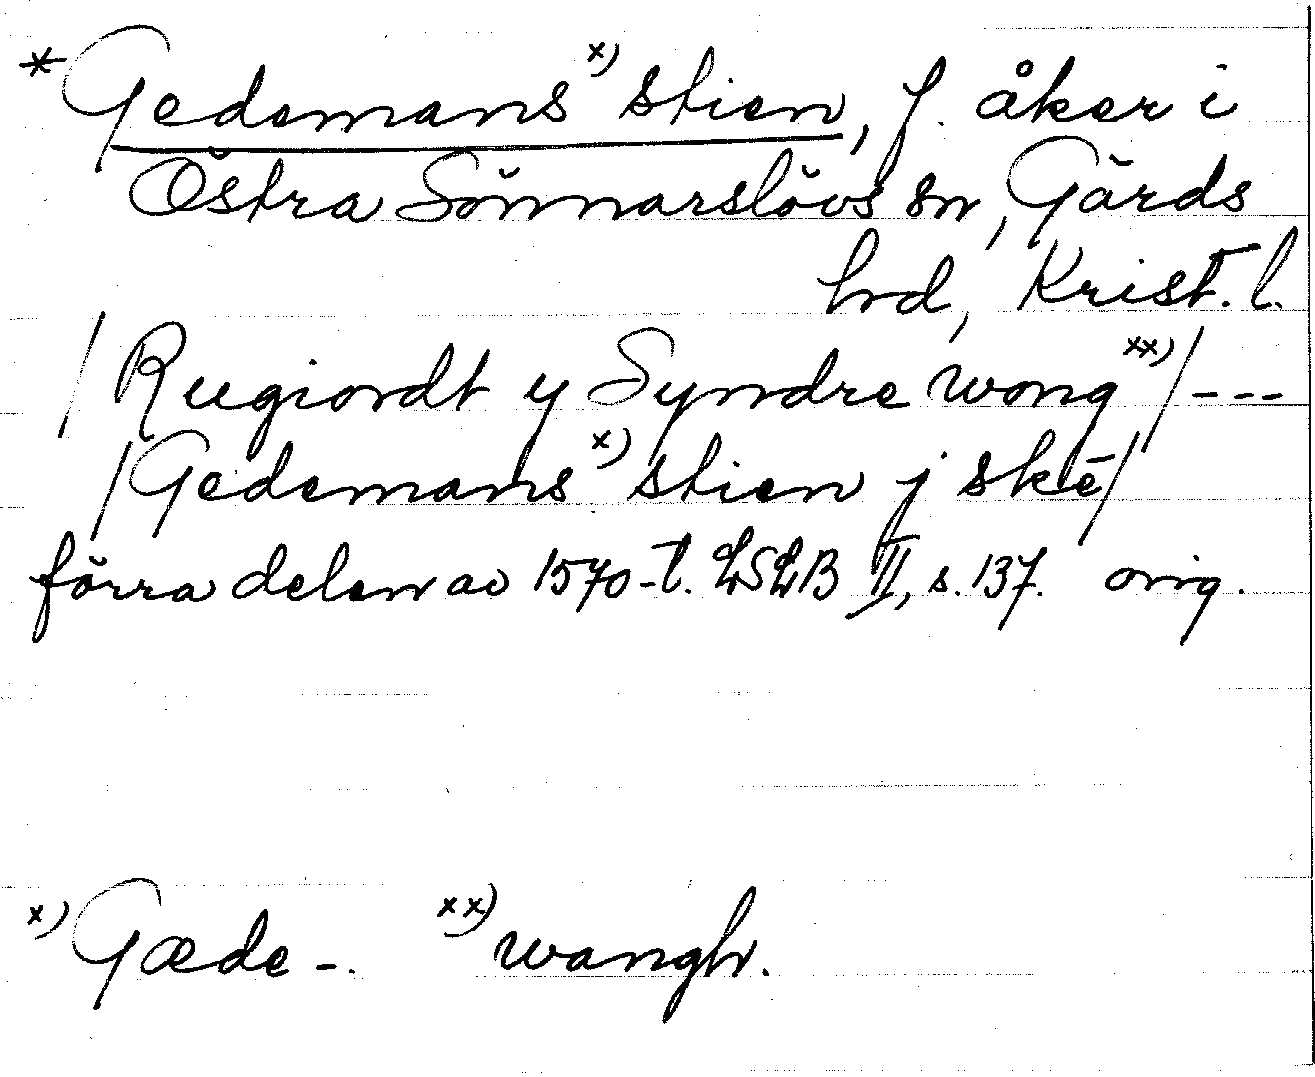 *Gedemans x) stien, f. åker i
Östra Sönnarslövs sn, Gärds
hrd, Krist. l.
/Rugiordt y Syndre wong xx)/ ---
/Gedemans x) stien j skē/
förra delen av 1570-t. LSLB II, s. 137. orig.
x) Gæde-. xx) wangh.